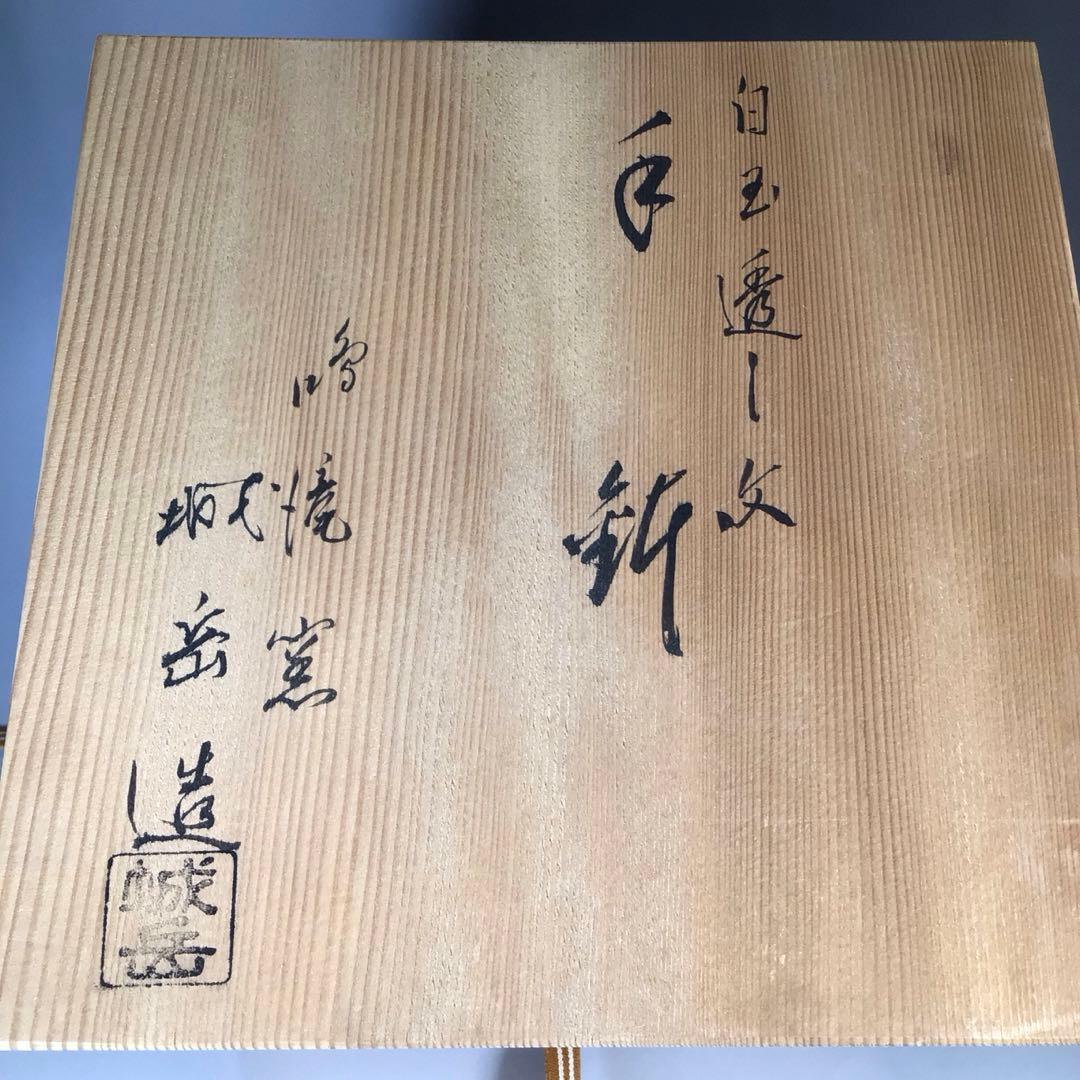 白玉透し文
手鉢
鳴滝窯
城岳造
城岳